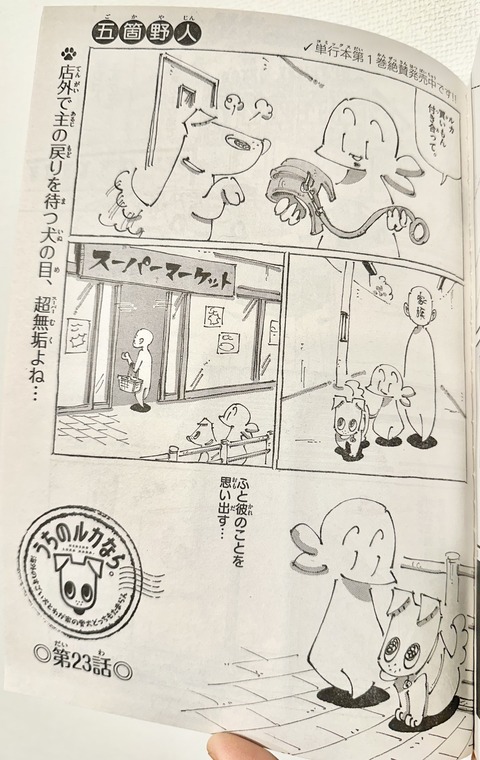 五箇野人
✓単行本第1巻絶賛発売中です!!
店外で主の戻りを待つ犬の目、超無垢よね…
ルカ
買いもん
付き合って。
家族
スーパーマーケット
ふと彼のことを
思い出す…
うちのルカなら。
◎第23話◎